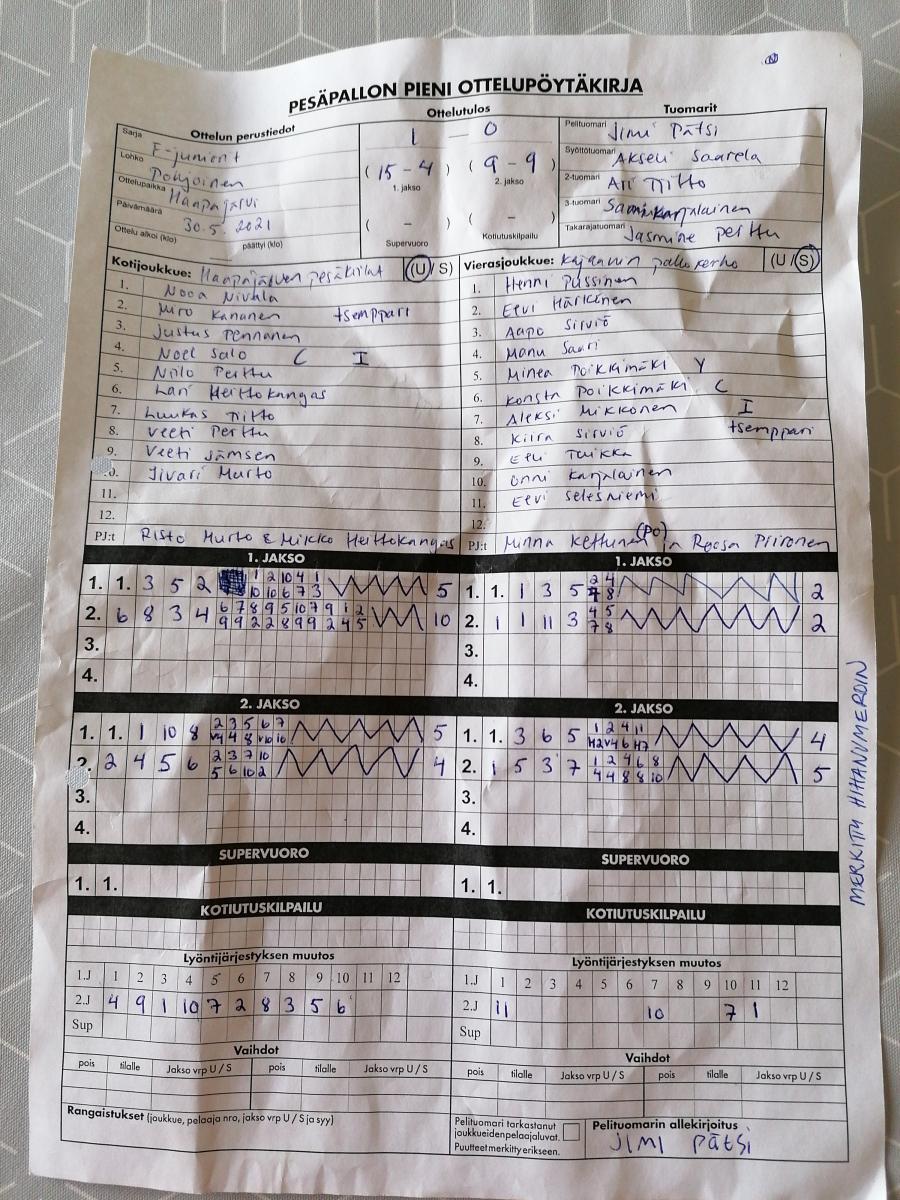 PESÄPALLON PIENI OTTELUPÖYTÄKIRJA
Ottelun perustiedot
Sarja F-juniorit
Lohko Pohjoinen
Ottelupaikka Haapajärvi
Päivämäärä 30.5.2021
Ottelu alkoi (klo) päättyi (klo)
Ottelutulos
1 - 0
(15 - 4) (9 - 9)
1. jakso 2. jakso
( - ) ( - )
Supervuoro Kotiutuskilpailu
Tuomarit
Pelituomari Jimi Pätsi
Syöttötuomari Akseli Saarela
2-tuomari Ari Tiitto
3-tuomari Sami Karjalainen
Takarajatuomari Jasmine Perttu
Kotijoukkue: Haapajärven pesäkiilat (U/S)
1. Nooa Nivala
2. Miro Kananen tsemppari
3. Justus Pennanen
4. Noel Salo C I
5. Niilo Perttu
6. Lari Heittokangas
7. Luukas Tiitto
8. Veeti Perttu
9. Veeti Jämsen
10. Iivari Murto
11.
12.
PJ:t Risto Murto & Mikko Heittokangas
Vierasjoukkue: Kajaanin pallokerho (U/S)
1. Henni Pussinen
2. Eevi Härkönen
3. Aapo Sirviö
4. Manu Saari
5. Minea Poikkimäki Y
6. Konsta Poikkimäki C
7. Aleksi Mikkonen I
8. Kiira Sirviö tsemppari
9. Eeli Tuikka
10. Onni Karjalainen
11. Eevi Selesniemi
12.
PJ:t Minna Kettunen (PO) ja Roosa Piironen
1. JAKSO
1. 1. 3 5 2 1 2 10 4 1 5
10 10 6 7 3
2. 6 8 3 4 6 7 8 9 5 10 7 9 1 2 10
9 9 2 2 8 9 9 2 4 5
3.
4.
1. JAKSO
1. 1. 1 3 5 2 4 2
7 8
2. 1 1 11 3 4 5 2
7 8
3.
4.
2. JAKSO
1. 1. 1 10 8 2 3 5 6 7 5
V4 4 8 V10 10
2. 2 4 5 6 2 3 7 10 4
5 6 10 2
3.
4.
2. JAKSO
1. 1. 3 6 5 1 2 4 11 4
H2 V4 6 H7
2. 1 5 3 7 1 2 4 6 8 5
4 4 8 8 10
3.
4.
SUPERVUORO
1. 1.
SUPERVUORO
1. 1.
KOTIUTUSKILPAILU
KOTIUTUSKILPAILU
Lyöntijärjestyksen muutos
1.J 1 2 3 4 5 6 7 8 9 10 11 12
2.J 4 9 1 10 7 2 8 3 5 6
Sup
Lyöntijärjestyksen muutos
1.J 1 2 3 4 5 6 7 8 9 10 11 12
2.J 11 10 7 1
Sup
Vaihdot
pois tilalle Jakso vrp U / S pois tilalle Jakso vrp U / S
Vaihdot
pois tilalle Jakso vrp U / S pois tilalle Jakso vrp U / S
Rangaistukset (joukkue, pelaaja nro, jakso vrp U / S ja syy)
Pelituomari tarkastanut
joukkueidenpelaajaluvat.
Puutteet merkitty erikseen.
Pelituomarin allekirjoitus
JIMI PÄTSI
MERKITTY HIHANUMEROIN